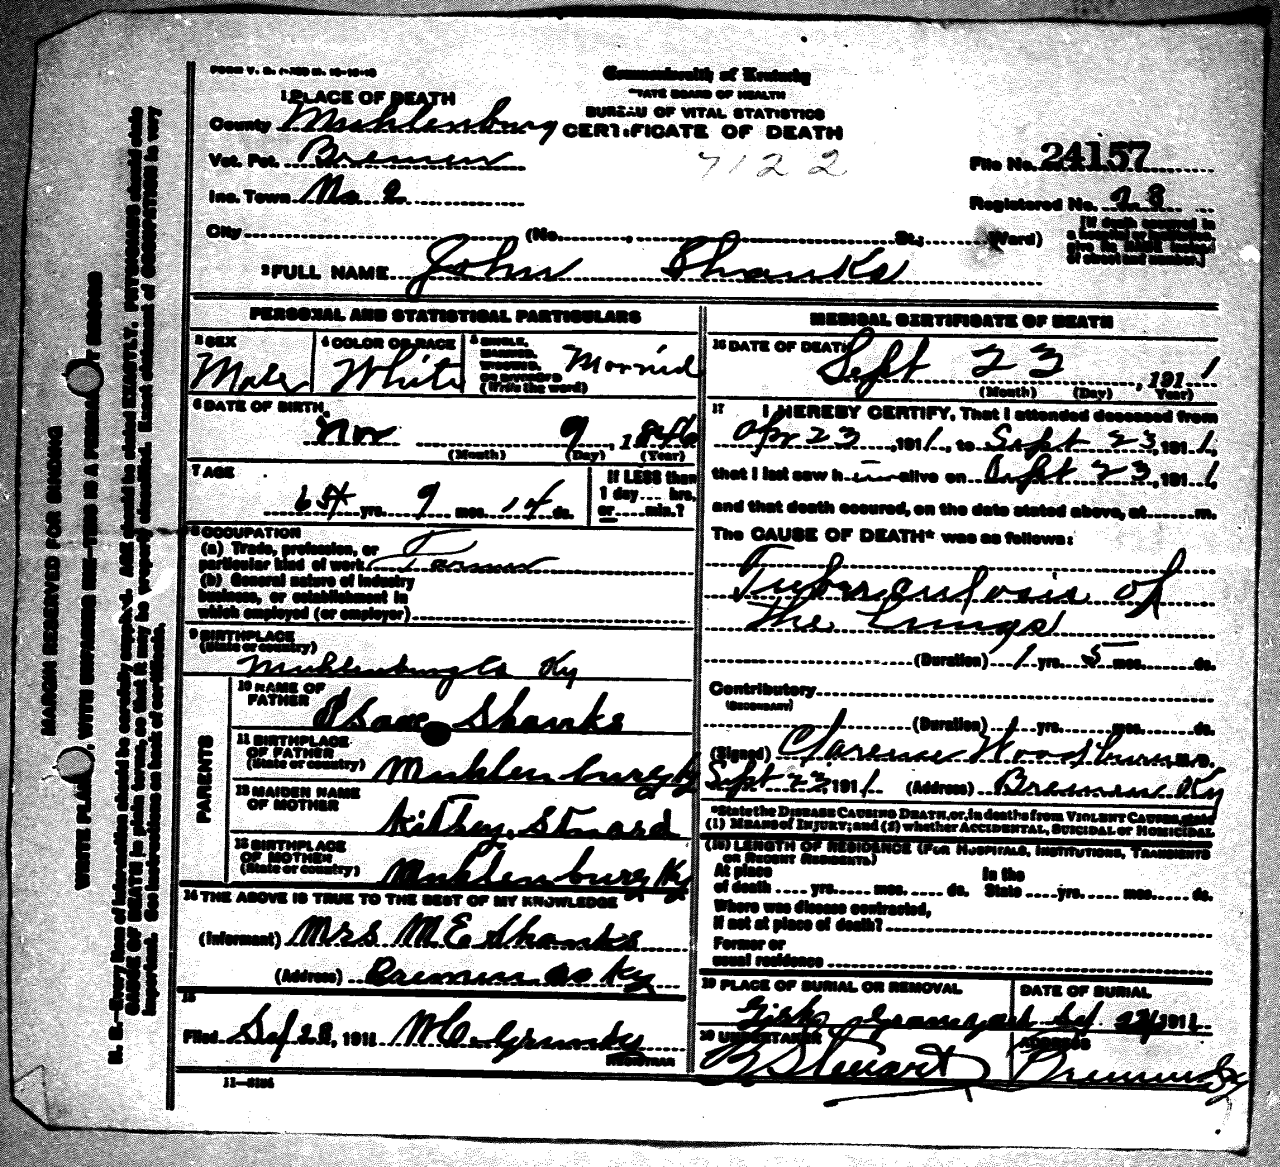 FORM V. S.
Commonwealth of Kentucky
STATE BOARD OF HEALTH
BUREAU OF VITAL STATISTICS
CERTIFICATE OF DEATH
7122
1 PLACE OF DEATH
County Muhlenburg
Vot. Pct. Bremen
Inc. Town No 2
City (No. , St.; Ward)
File No. 24157
Registered No. 28
[If death occurred in a hospital or institution, give its NAME instead of street and number.]
2 FULL NAME John Shanks
PERSONAL AND STATISTICAL PARTICULARS
3 SEX
Male
4 COLOR OR RACE
White
5 SINGLE, MARRIED, WIDOWED, OR DIVORCED (Write the word)
Married
6 DATE OF BIRTH
Nov 9, 1846
(Month) (Day) (Year)
7 AGE
yrs. 9 mos. 14 ds.
If LESS than 1 day hrs. or min.?
8 OCCUPATION
(a) Trade, profession, or
particular kind of work Farmer
(b) General nature of industry
business, or establishment in
which employed (or employer)
9 BIRTHPLACE
(State or country)
Muhlenburg Co Ky
PARENTS
10 NAME OF FATHER
Isaac Shanks
11 BIRTHPLACE OF FATHER
(State or country)
Muhlenburg Ky
12 MAIDEN NAME OF MOTHER
Kithey Stuard
13 BIRTHPLACE OF MOTHER
(State or country)
Muhlenburg Ky
14 THE ABOVE IS TRUE TO THE BEST OF MY KNOWLEDGE
(Informant) Mrs M E Shanks
(Address) Bremen Ky
15
Filed Sep 28, 1911
REGISTRAR
11-3184
MEDICAL CERTIFICATE OF DEATH
16 DATE OF DEATH
Sept 23, 1911
(Month) (Day) Year)
17 I HEREBY CERTIFY, That I attended deceased from
Apr 23, 1911, to Sept 23, 1911,
that I last saw him alive on Sept 23, 1911,
and that death occured, on the date stated above, at m.
The CAUSE OF DEATH* was as follows:
Tuberculosis of
The Lungs
(Duration) 1 yrs. 5 mos. ds.
Contributory
(SECONDARY)
(Duration) yrs. mos. ds.
(Signed) Clarence Woodburn, M.D.
Sept 23 1911 (Address) Bremen Ky
*State the DISEASE CAUSING DEATH, or, in deaths from VIOLENT CAUSES, state
(1) MEANS of INJURY; and (2) whether ACCIDENTAL, SUICIDAL or HOMICIDAL
(18) LENGTH OF RESIDENCE (FOR HOSPITALS, INSTITUTIONS, TRANSIENTS
OR RECENT RESIDENTS)
At place of death yrs. mos. ds. In the State yrs. mos. ds.
Where was disease contracted,
if not at place of death?
Former or
usual residence
19 PLACE OF BURIAL OR REMOVAL
DATE OF BURIAL
1911
20 UNDERTAKER
Stewart
ADDRESS
Bremen Ky
MARGIN RESERVED FOR BINDING
WRITE PLAINLY, WITH UNFADING INK—THIS IS A PERMANENT RECORD
N. B.—Every item of information should be carefully supplied. AGE should be stated EXACTLY. PHYSICIANS should state
CAUSE OF DEATH in plain terms, so that it may be properly classified. Exact statement of OCCUPATION is very
important. See instructions on back of certificate.